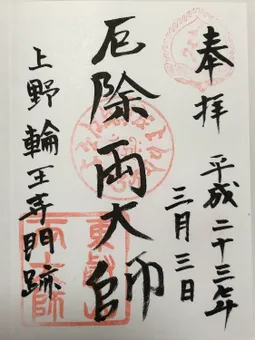 奉拝
平成二十三年
三月三日
厄除両大師
上野輪王寺門跡